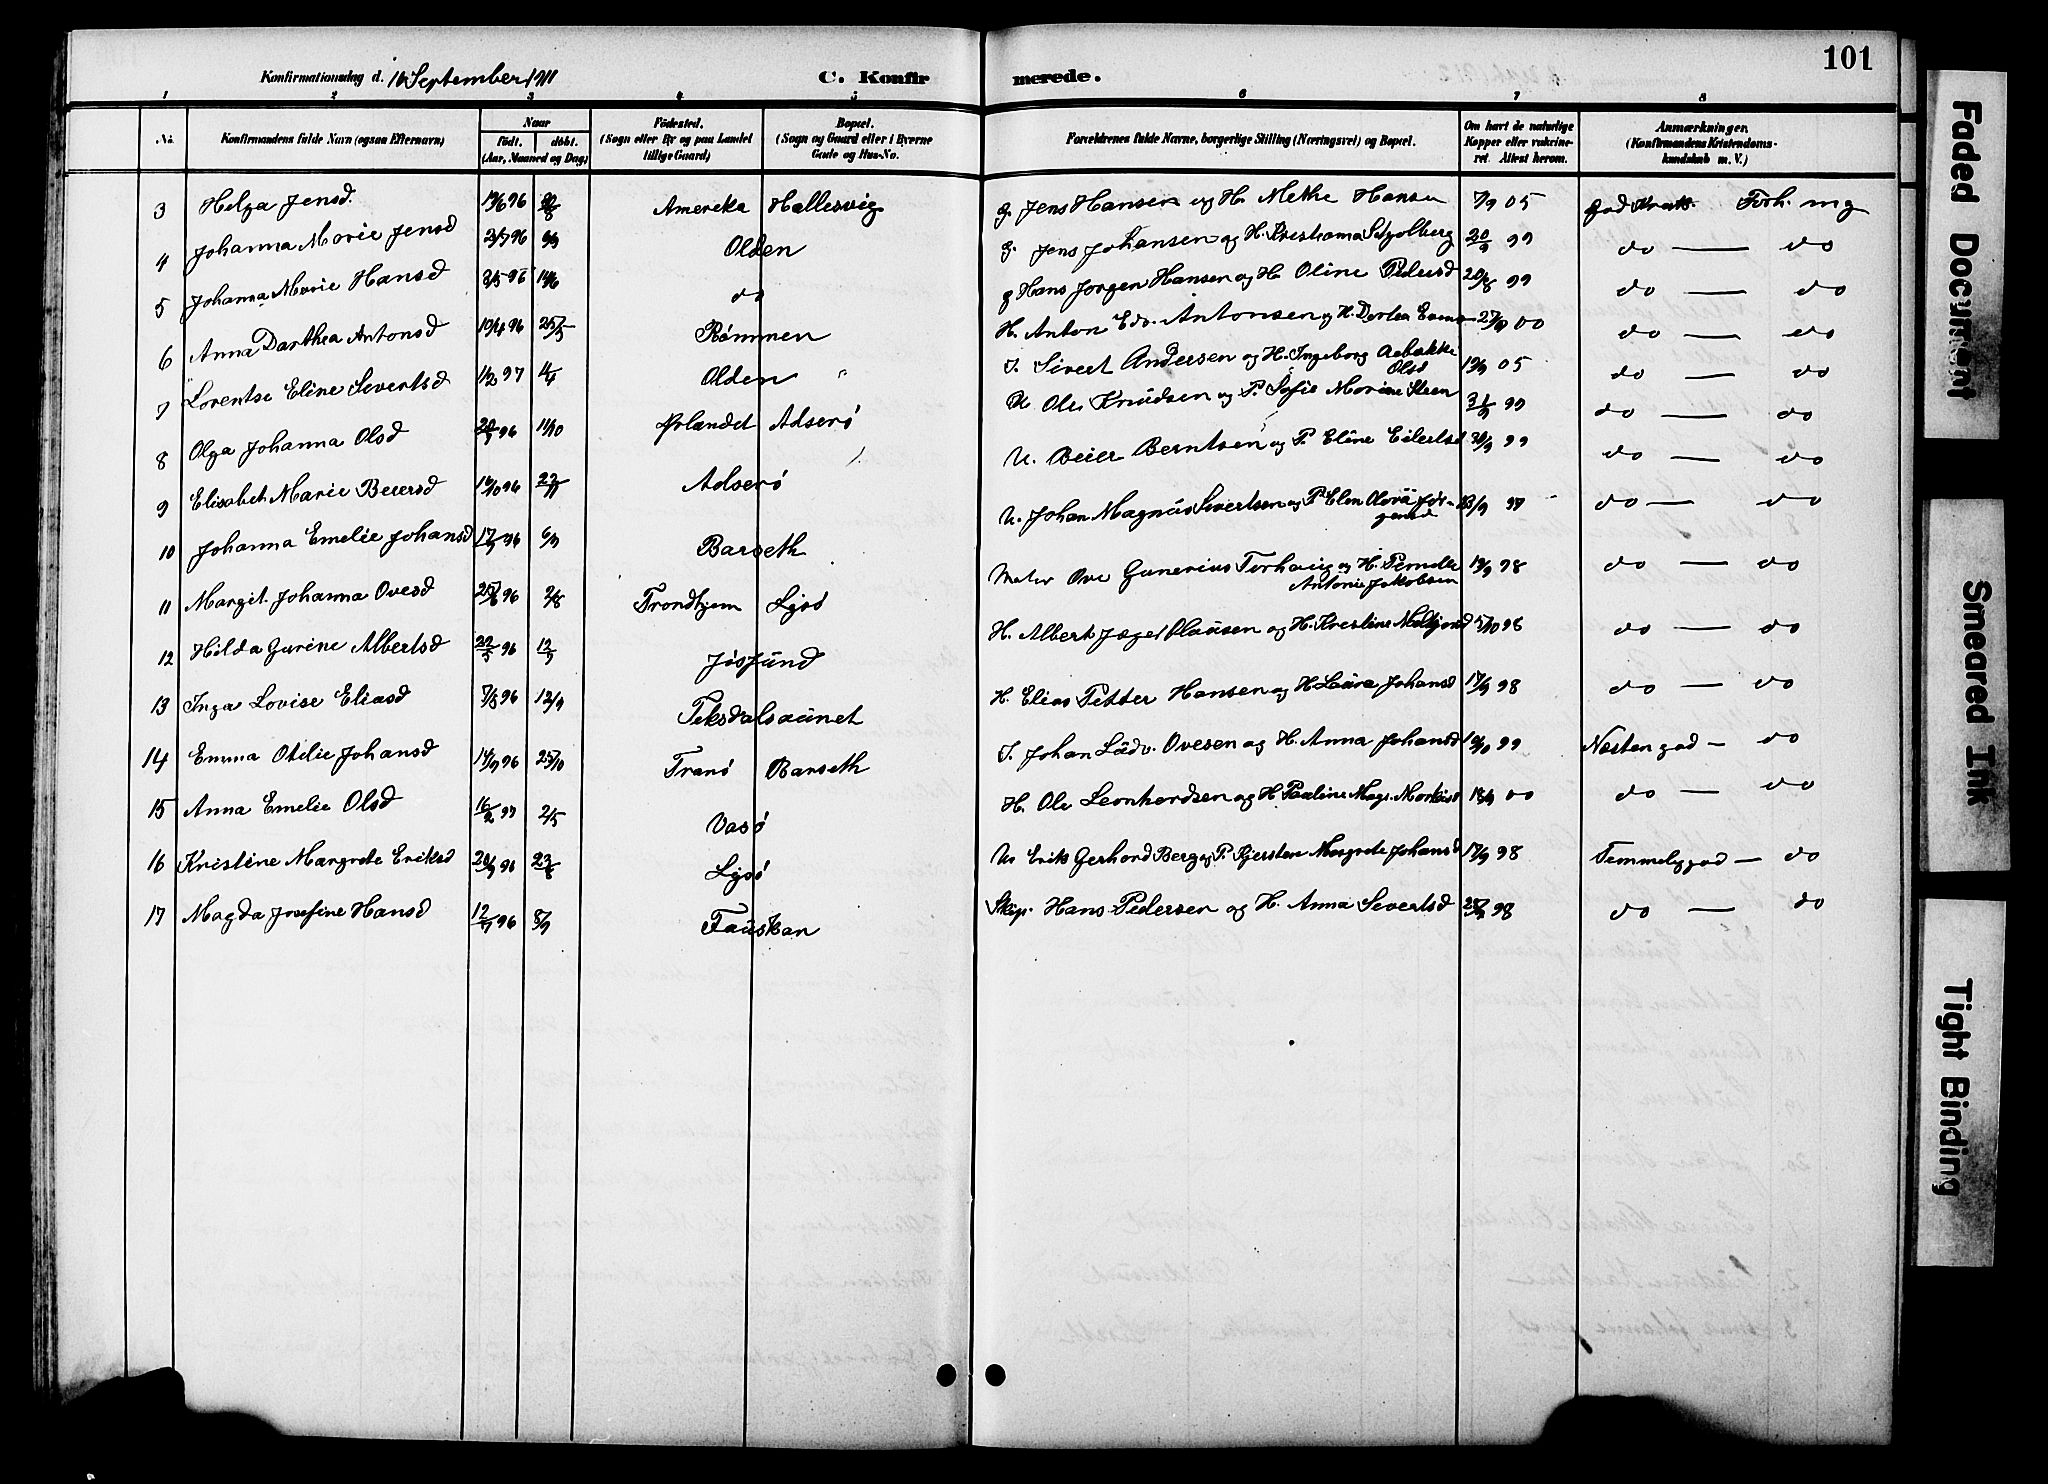 101
Konfirmationsdag d. 16 September 1911 C. Konfirmerede.
1 2 3 4 5 6 7 8
No. Konfirmandens fulde Navn (ogsaa Efternavn) Naar födt. döbt. (Aar, Maaned og Dag) Födested. (Sogn eller By og paa Landet tillige Gaard) Bopæl. (Sogn og Gaard eller i Byerne Gade og Hus-No. Forældrenes fulde Navne, borgerlige Stilling (Næringsvei) og Bopæl. Om havt de naturlige Kopper eller vaccineret. Attest herom. Anmærkninger. (Konfirmandens Kristendomskundskab m. V.)
3 Helga Jensd. 19/6 96 Amerika Hallesvig g. Jens Hansen og H. Methe Hansen 7/9 05 god Forh. mg
4 Johanna Marie Jensd 21/7 96 6/9 Olden g. Jens Johansen og H. 20/9 99 do — do
5 Johanna Marie Hansd 3/5 96 14/6 do g Hans Jørgen Hansen og H. Oline Pedersd 20/8 99 do — do
6 Anna Darthea Antonsd 10/4 96 25/5 Rømmen H. Anton Edv. Antonsen og H. 27/9 00 do — do
7 Lorentse Eline Severtsd 11/2 97 11/4 Olden " Sivert Andersen og H. Ingeborg Olsd 19/9 05 do — do
8 Olga Johanna Olsd 20/7 96 11/10 Ørlandet Adserø U Ole Knudsen og P. Sofie Marine Steen 31/9 99 do — do
9 Elisabet Marie Beiersd 16/10 96 22/11 Adserø U. Beier Berntsen og P. Eline Eilertsd 30/9 99 do — do
10 Johanna Emelie Johansd 17/7 96 6/9 Barseth U. Johan Magnus Sivertsen og P. 13/9 97 do — do
11 Margit Johanna Ovesd 25/6 96 2/8 Trondhjem Lysø Ove Gunerius Torhaug og H. Pernelle Antonie Jakobsen 19/9 98 do — do
12 Hilda Gurine Albertsd 22/5 96 12/7 Jøssund H. Albert Jæger Clausen og H. Kristine 5/10 98 do — do
13 Inga Lovise Eliasd 7/8 96 13/9 Teksdalsaunet H. Elias Petter Hansen og H Laura Johansd 17/9 98 do — do
14 Emma Otilie Johansd 14/9 96 25/10 Tranø Barseth Johan Ludv. Ovesen og H. Anna Johansd 10/10 99 Næsten god — do
15 Anna Emelie Olsd 16/2 97 2/5 Vasø H. Ole Leonhardsen og H. Pauline 18/9 00 do — do
16 Kristine Margrete Eriksd 20/7 96 23/8 Lysø U Erik Gerhard Berg og P. Kjerstine Margrete Johansd 17/9 98 Temmelig god — do
17 Magda Josefine Hansd 12/7 96 8/9 Fauskan Skip. Hans Pedersen og H. Anna Severtsd 25/9 98 do — do
Faded Document
Smeared Ink
Tight Binding